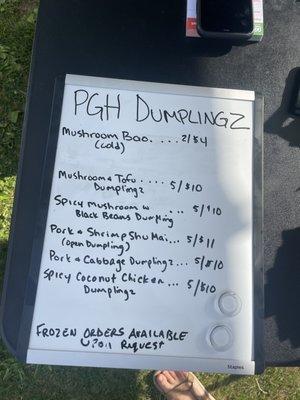 PGH DUMPLINGZ
Mushroom Bao.... 2/$4
(cold)
Mushroom & Tofu.... 5/$10
Dumplingz
Spicy Mushroom w ... 5/$10
Black Beans Dumpling
Pork & Shrimp Shu Mai... 5/$11
(open Dumpling)
Pork & Cabbage Dumplingz... 5/$10
Spicy Coconut Chicken... 5/$10
Dumplingz
FROZEN ORDERS AVAILABLE
Upon Request
Staples